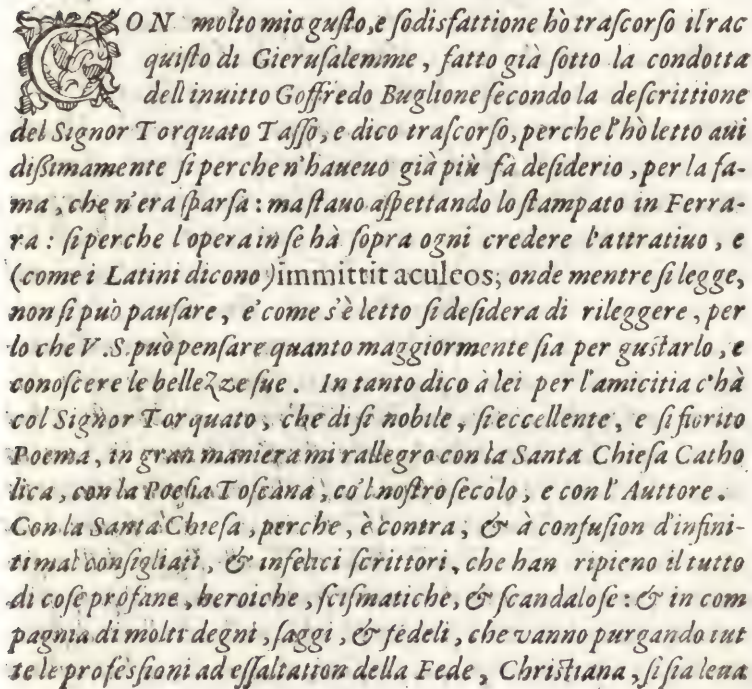 CON molto mio gusto, e sodisfattione hò trascorso il rac
quisto di Gierusalemme, fatto già sotto la condotta
dell inuitto Goffredo Buglione secondo la descrittione
del Signor Torquato Tasso, e dico trascorso, perche l'hò letto aui
dissimamente si perche n'haueuo già più fà desiderio, per la fa-
ma, che n'era sparsa: ma stauo aspettando lo stampato in Ferra-
ra: si perche l opera in se hà sopra ogni credere l'attratiuo, e
(come i Latini dicono) immittit aculeos; onde mentre si legge,
non si può pausare, e' come s'è letto si desidera di rileggere, per
lo che V. S. può pensare quanto maggiormente sia per gustarlo, e
conoscere le bellezze sue. In tanto dico à lei per l'amicitia c'hà
col Signor Torquato, che di si nobile, si eccellente, e si fiorito
Poema, in gran maniera mi rallegro con la Santa Chiesa Catho
lica, con la Poesia Toscana, co'l nostro secolo, e con l' Auttore.
Con la Santa Chiesa, perche, è contra, & à confusion d'infini-
ti mal consigliati, & infelici scrittori, che han ripieno il tutto
di cose profane, heroiche, scismatiche, & scandalose: & in com
pagnia di molti degni, saggi, & fedeli, che vanno purgando tut
te le professioni ad essaltation della Fede, Christiana, si sia leua